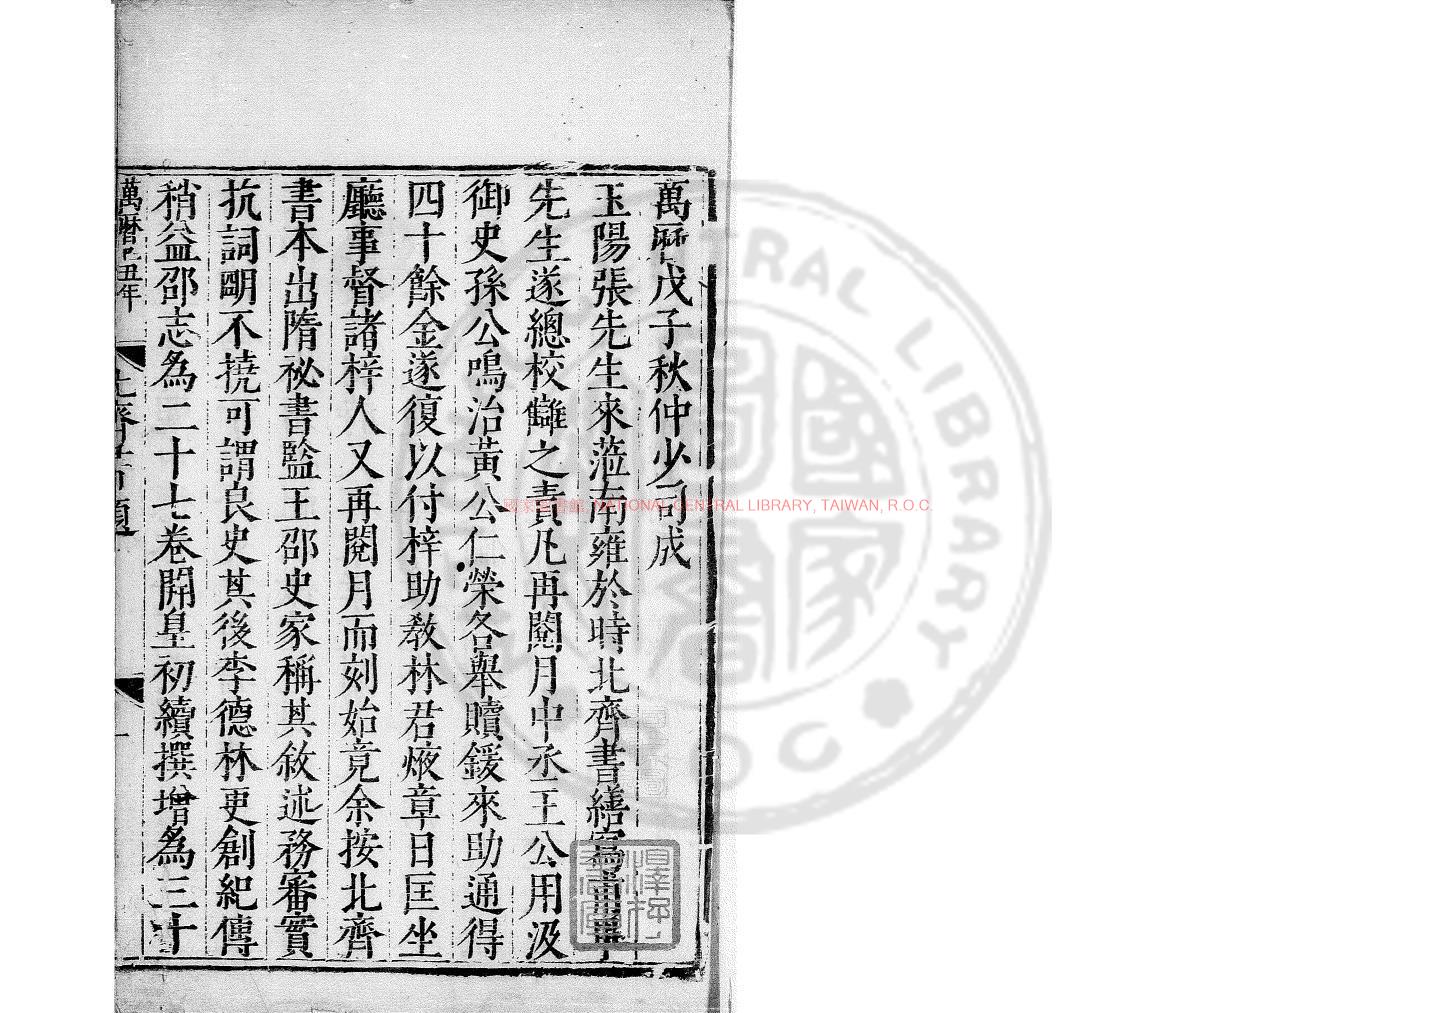 萬曆戊子秋仲少司成
玉陽張先生來蒞南雍於時北齊書繕寫甫畢
先生遂總校讎之責凡再閱月中丞王公用汲
御史孫公鳴治黃公仁榮各舉贖鍰來助通得
四十餘金遂復以付梓助教林君焲章日匡坐
廳事督諸梓人又再閱月而刻始竟余按北齊
書本出隋祕書監王邵史家稱其敘述務審實
抗詞眀不撓可謂良史其後李德林更創紀傳
稍益邵志為二十七卷開皇初續撰增為三十
萬曆己丑年
北齊書 題
一
國家圖書館, NATIONAL CENTRAL LIBRARY, TAIWAN, R.O.C.